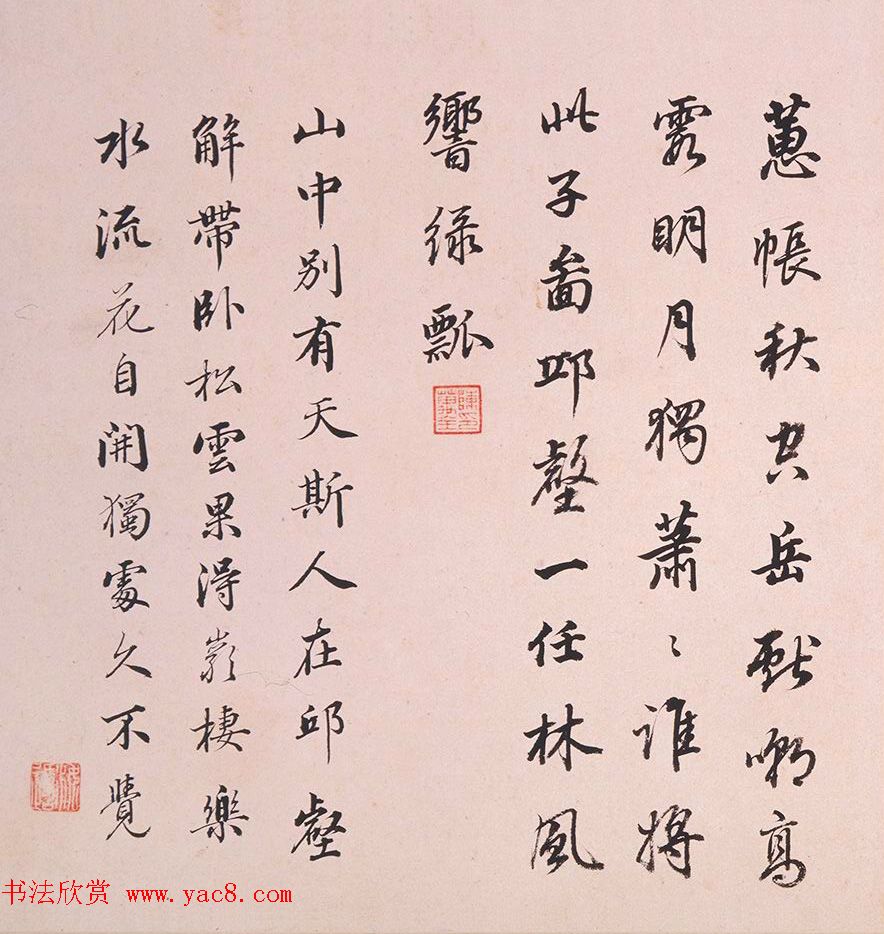 蕙帳秋空岳猷啣高
霞明月獨蕭〻誰將
此子畫邱壑一任林風
響綠瓢
山中別有天斯人在邱壑
解帶卧松雲果得巖棲樂
水流花自開獨處久不覺
书法欣赏 www.yac8.com